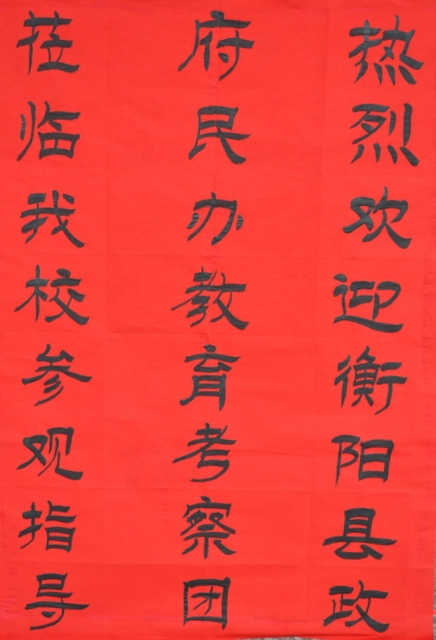 热烈欢迎衡阳县政
府民办教育考察团
莅临我校参观指导